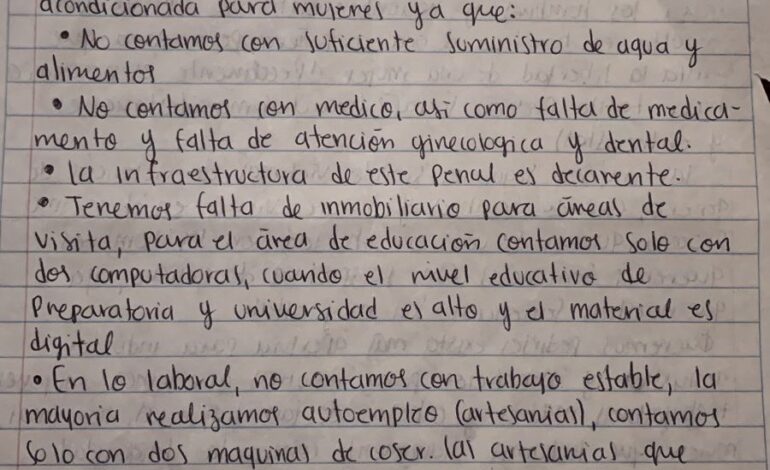 acondicionada para mujeres ya que:
• No contamos con suficiente suministro de agua y
alimentos
• No contamos con medico, asi como falta de medica-
mento y falta de atención ginecologica y dental.
• la infraestructura de este penal es decarente.
• Tenemos falta de inmobiliario para áreas de
visita, para el área de educación contamos solo con
dos computadoras, cuando el nivel educativo de
Preparatoria y universidad es alto y el material es
digital
• En lo laboral, no contamos con trabajo estable, la
mayoria realizamos autoempleo (artesanias), contamos
solo con dos maquinas de coser. las artesanias que